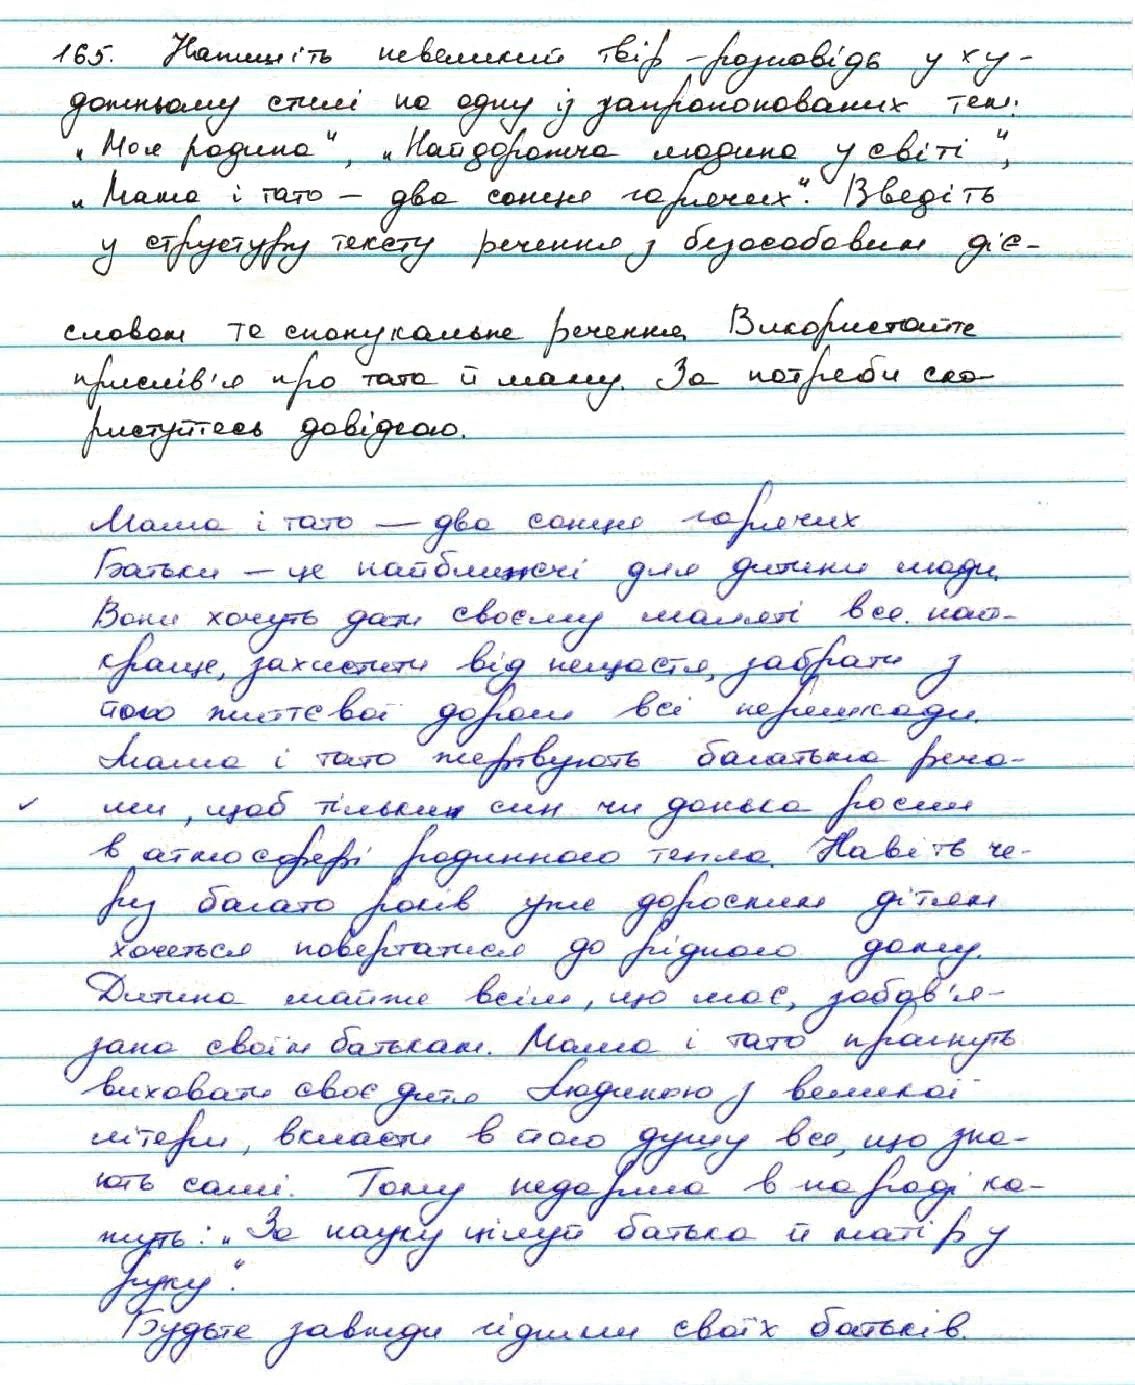 165. Напишіть невеликий твір-розповідь у ху-
дожньому стилі на одну із запропонованих тем:
„Моя родина", „Найдорожча людина у світі",
„Мама і тато – два сонця гарячих". Введіть
у структуру тексту речення з безособовим діє-
словом та спонукальне речення. Використайте
прислів'я про тата й маму. За потреби ско-
ристуйтесь довідкою.
Мама і тато — два сонця гарячих
Батьки – це найближчі для дитини люди.
Вони хочуть дати своєму маляті все най-
краще, захистити від нещастя, забрати з
його життєвої дороги всі перешкоди.
Мама і тато жертвують багатьма реча-
ми, щоб тільки син чи донька росли
в атмосфері родинного тепла. Навіть че-
рез багато років уже дорослим дітям
хочеться повертатися до рідного дому.
Дитина майже всім, що має, забов'я-
зана своїм батькам. Мама і тато прагнуть
виховати своє дитя Людиною з великої
літери, вкласти в його душу все, що зна-
ють самі. Тому недарма в народі ка-
жуть: „За науку цілуй батька й матір у
руку".
Будьте завжди гідними своїх батьків.